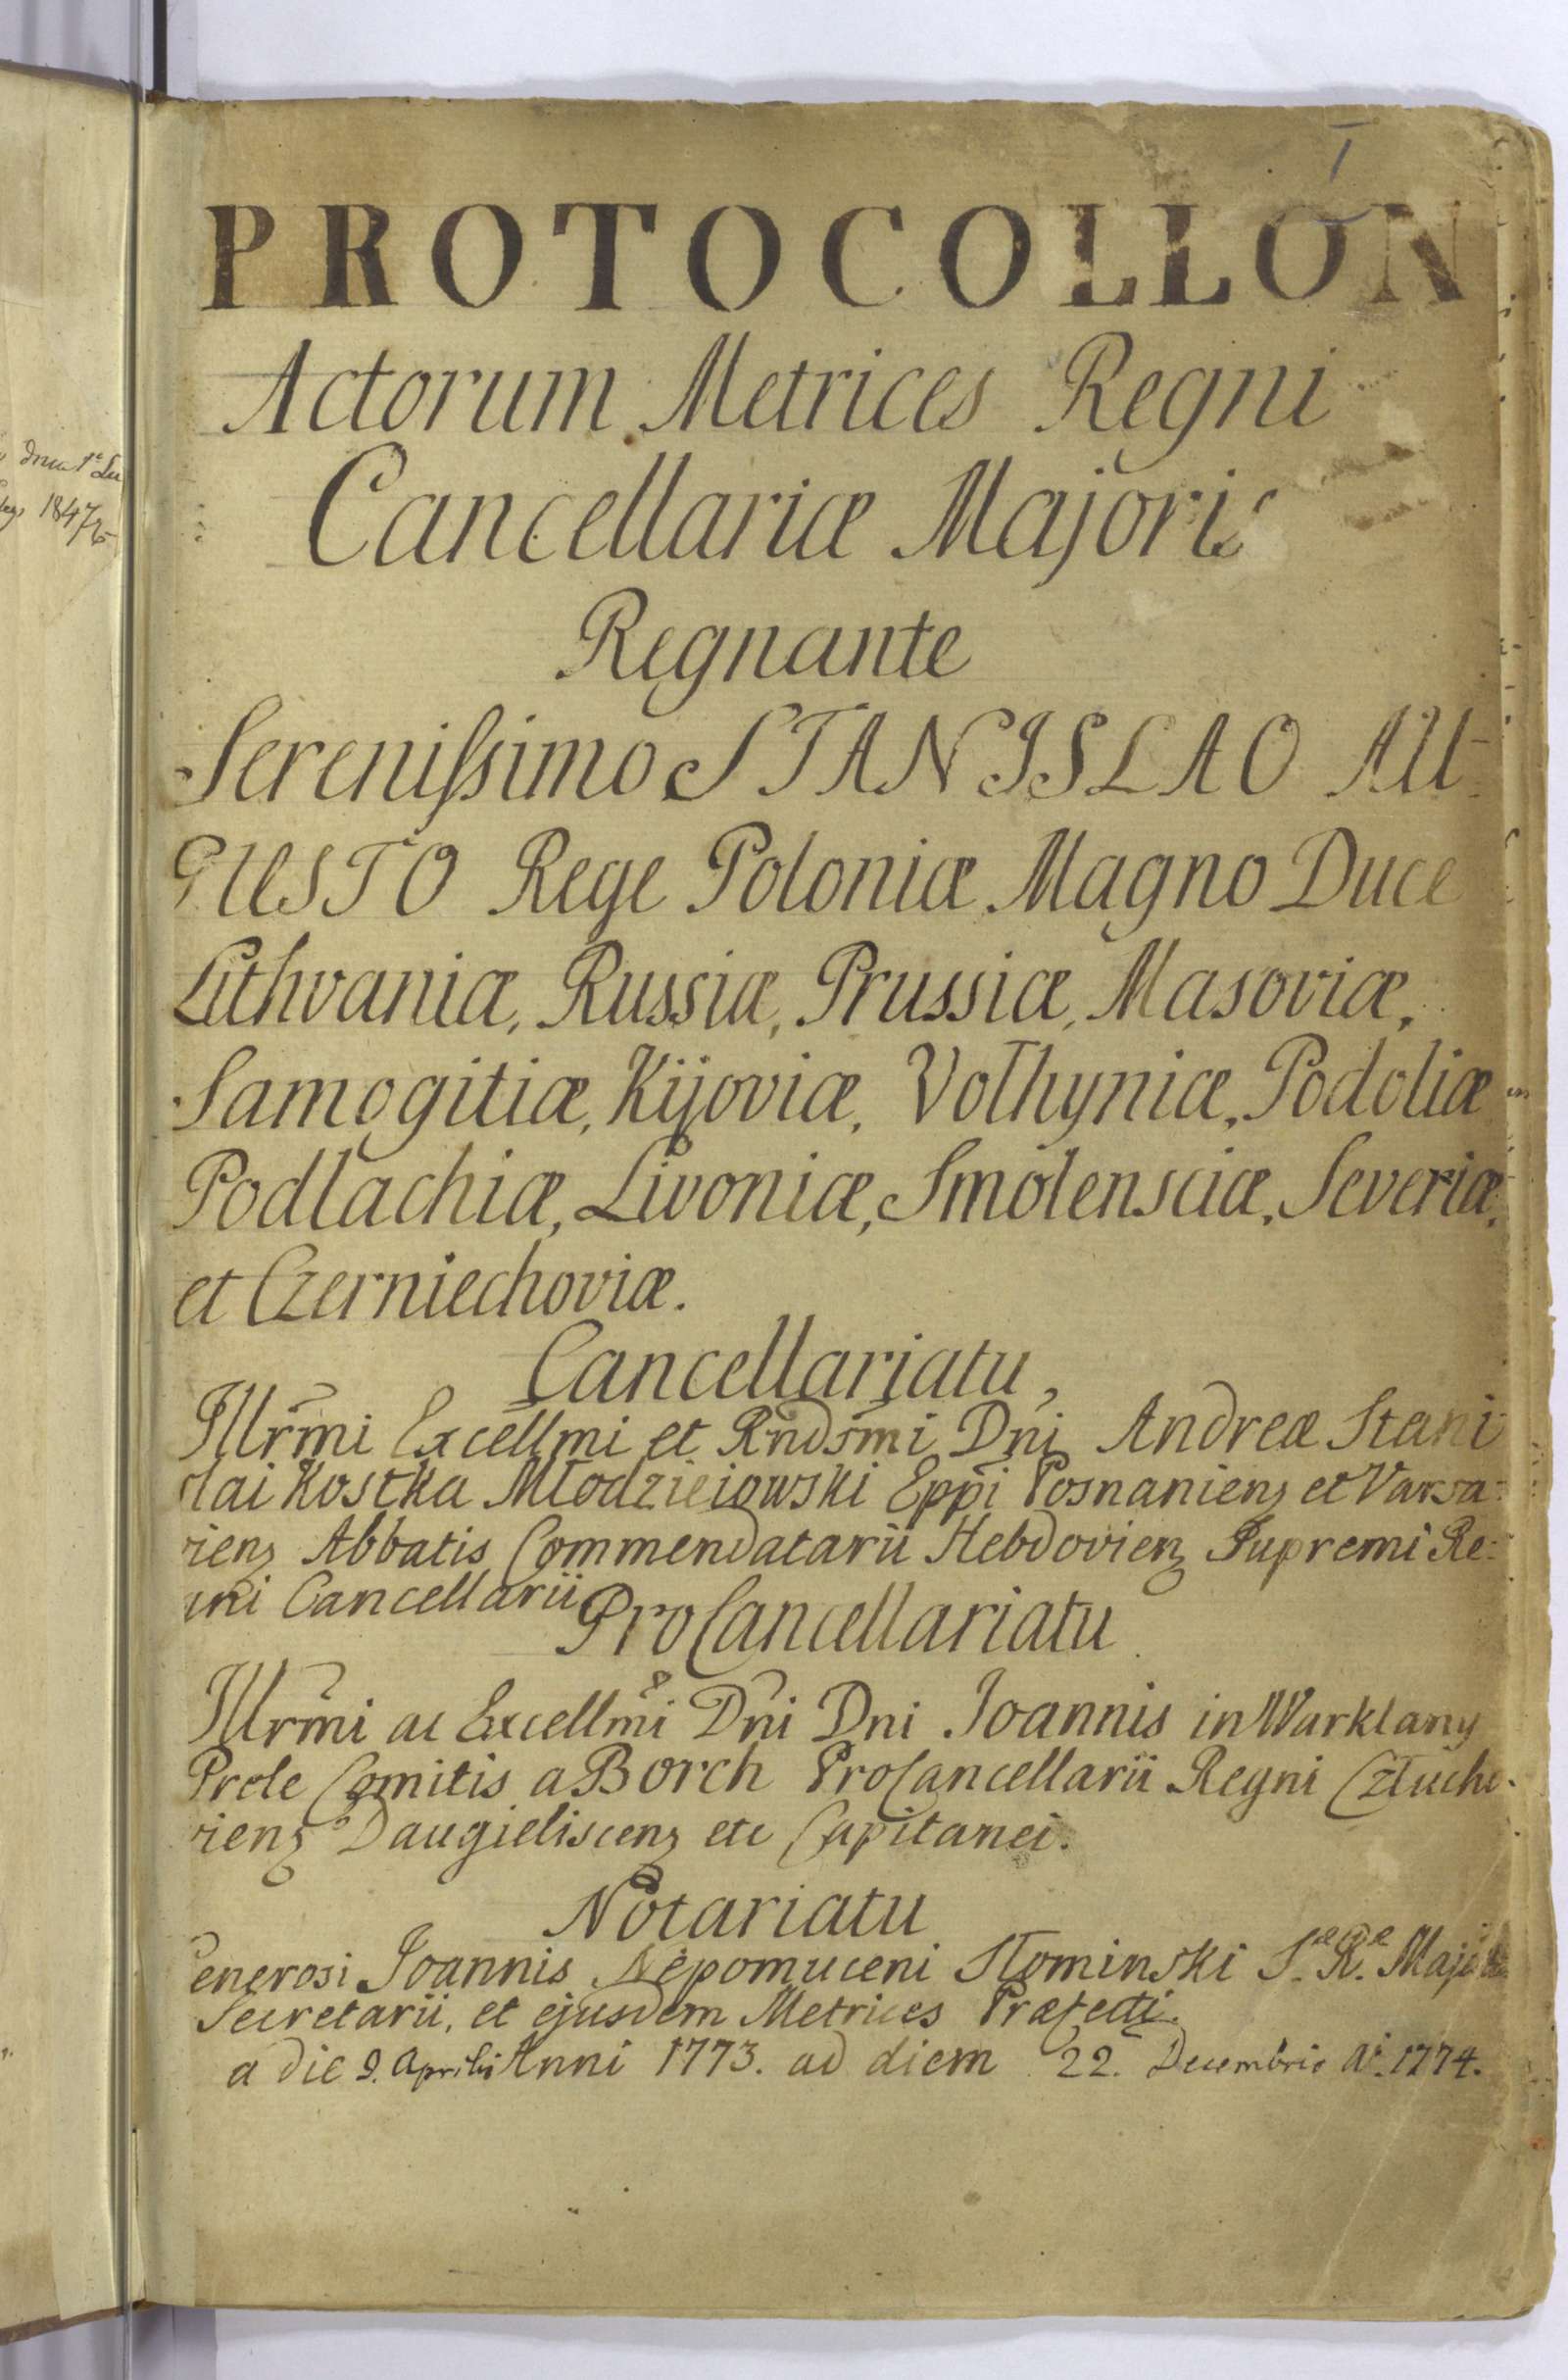 1847
I
PROTOCOLLON
Actorum Metrices Regni
Cancellariæ Majoris
Regnante
Serenissimo STANISLAO AU-
GUSTO Rege Poloniæ Magno Duce
Lithvaniæ, Russiæ, Prussiæ, Masoviæ,
Samogitiæ, Kijoviæ, Volhyniæ, Podoliæ
Podlachiæ, Livoniæ, Smolensciæ, Severiæ,
et Czerniechoviæ.
Cancellariatu,
Illrmi Excellmi et Rndsmi Dni Andreæ Stani
slai Kostka Młodzieiowski Eppi Posnaniens et Varsa-
viens Abbatis Commendatarii Hebdoviens Supremi Re-
gni Cancellarii
ProCancellariatu
Illrmi ac Excellmi Dni Dni Joannis in Warklany
Prele Comitis a Borch ProCancellarii Regni Człucho-
viens Daugieliscens etc Capitanei.
Notariatu
Generosi Joannis Nepomuceni Słominski S. R. Majestis
Secretarii, et ejusdem Metrices Præfecti.
a die 9. Aprilis Anni 1773. ad diem 22. Decembris Ai. 1774.